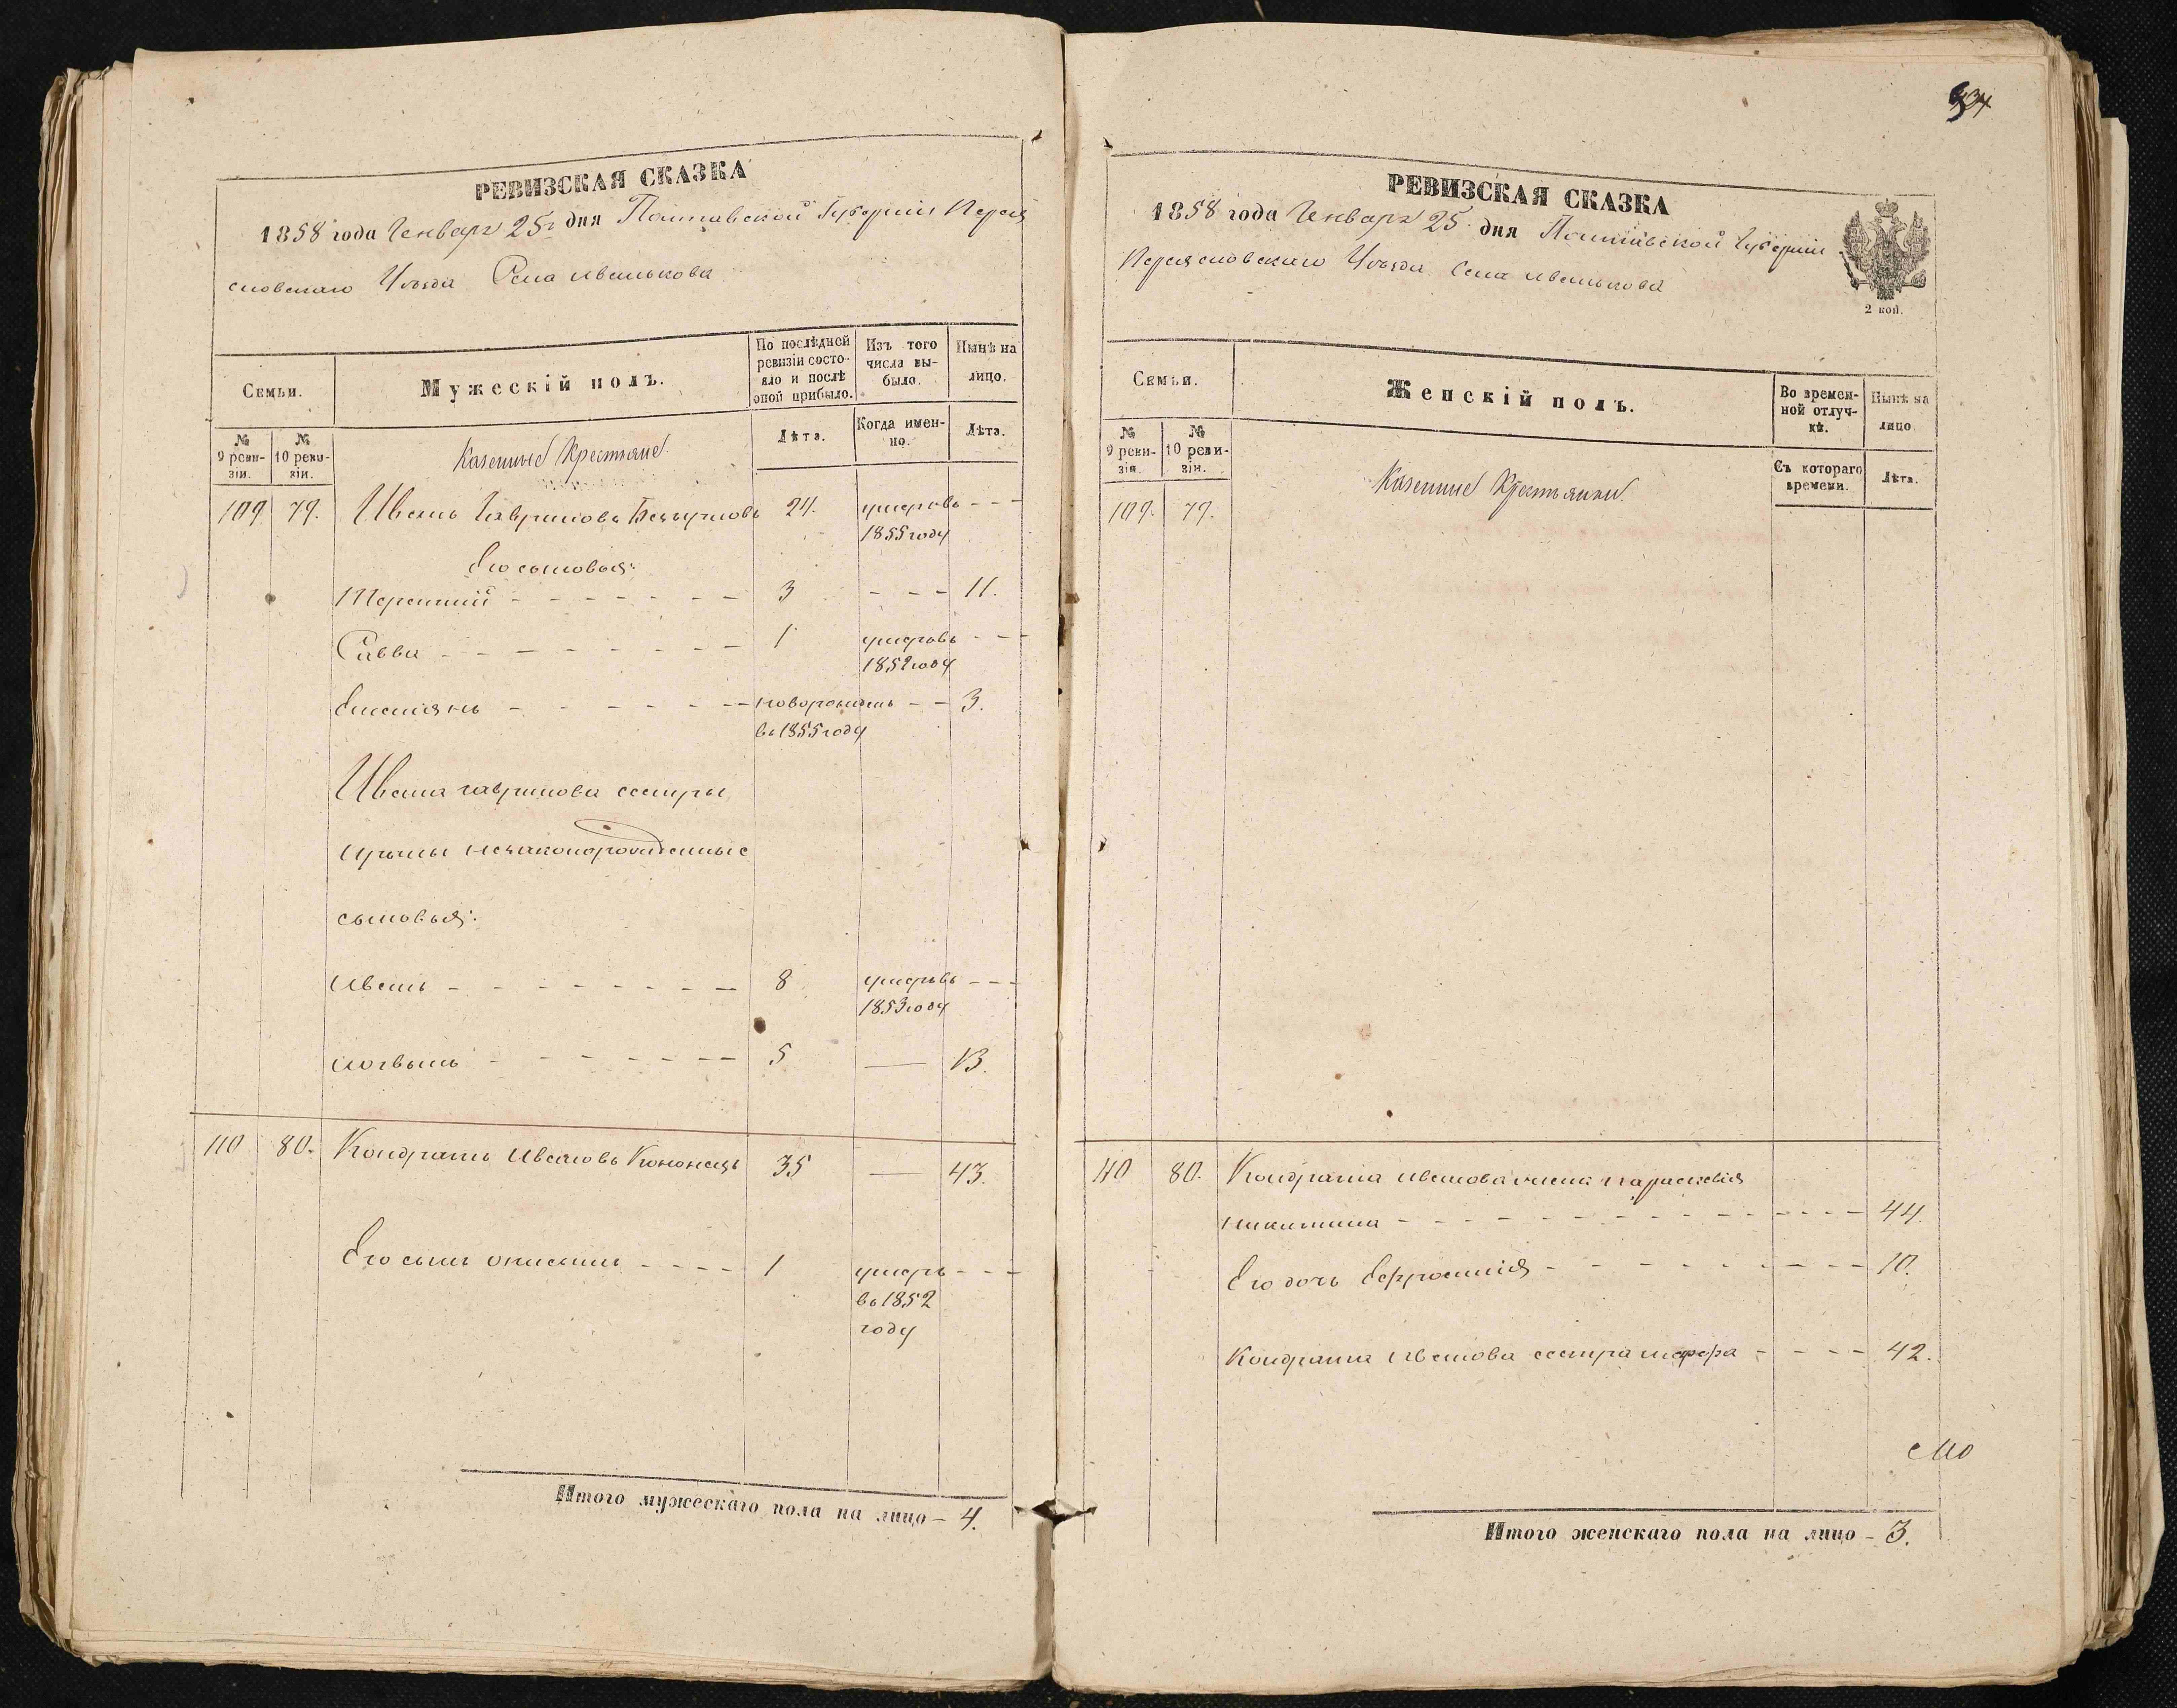 РЕВИЗСКАЯ СКАЗКА
1858 года Генваря 25 дня Полтавской Губерніи Перея
словскаго Уѣзда Села Иванькова
Семьи.
Мужескій полъ.
По послѣдней ревизіи состояло и послѣ оной прибыло.
Изъ того числа выбыло.
Нынѣ на лицо.
№ 9 ревизіи.
№ 10 ревизіи.
Казенные Крестьяне
Лѣта.
Когда именно.
Лѣта.
109 79. Иванъ Гавриловъ 24. умеръ въ - - -
1855 году
Его сыновья:
Терентий - - - - - - - 3 - - - 11.
Савва - - - - - - - - 1 умеръ въ - - -
1852 году
Емелiянъ - - - - - - - новорожденъ - - 3.
въ 1855 году
Ивана гаврилова сестры
ирыны незаконорожденные
сыновья:
иванъ - - - - - - - - 8 умеръ въ - - -
1853 году
логвынъ - - - - - - - 5 — 13.
110 80. Кондратъ Ивановъ Кононецъ 35 — 43.
Его сынъ онисимъ - - - - 1 умеръ - - -
въ 1852
году
Итого мужескаго пола на лицо - 4.
334
РЕВИЗСКАЯ СКАЗКА
1858 года Генваря 25 дня Полтавской Губерніи
Переясловскаго Уѣзда Села Иванькова
2 коп.
Семьи.
Женскій полъ.
Во временной отлучкѣ.
Нынѣ на лицо.
№ 9 ревизіи.
№ 10 ревизіи.
Казенные Крестьянки
Съ котораго времени.
Лѣта.
109. 79.
110 80. Кондрата иванова жена параскевія
никитина - - - - - - - - - - - - 44.
Его дочь Ефросинія - - - - - - - - - 10.
Кондрата Иванова сестра - - - - 42.
Итого женскаго пола на лицо - 3.